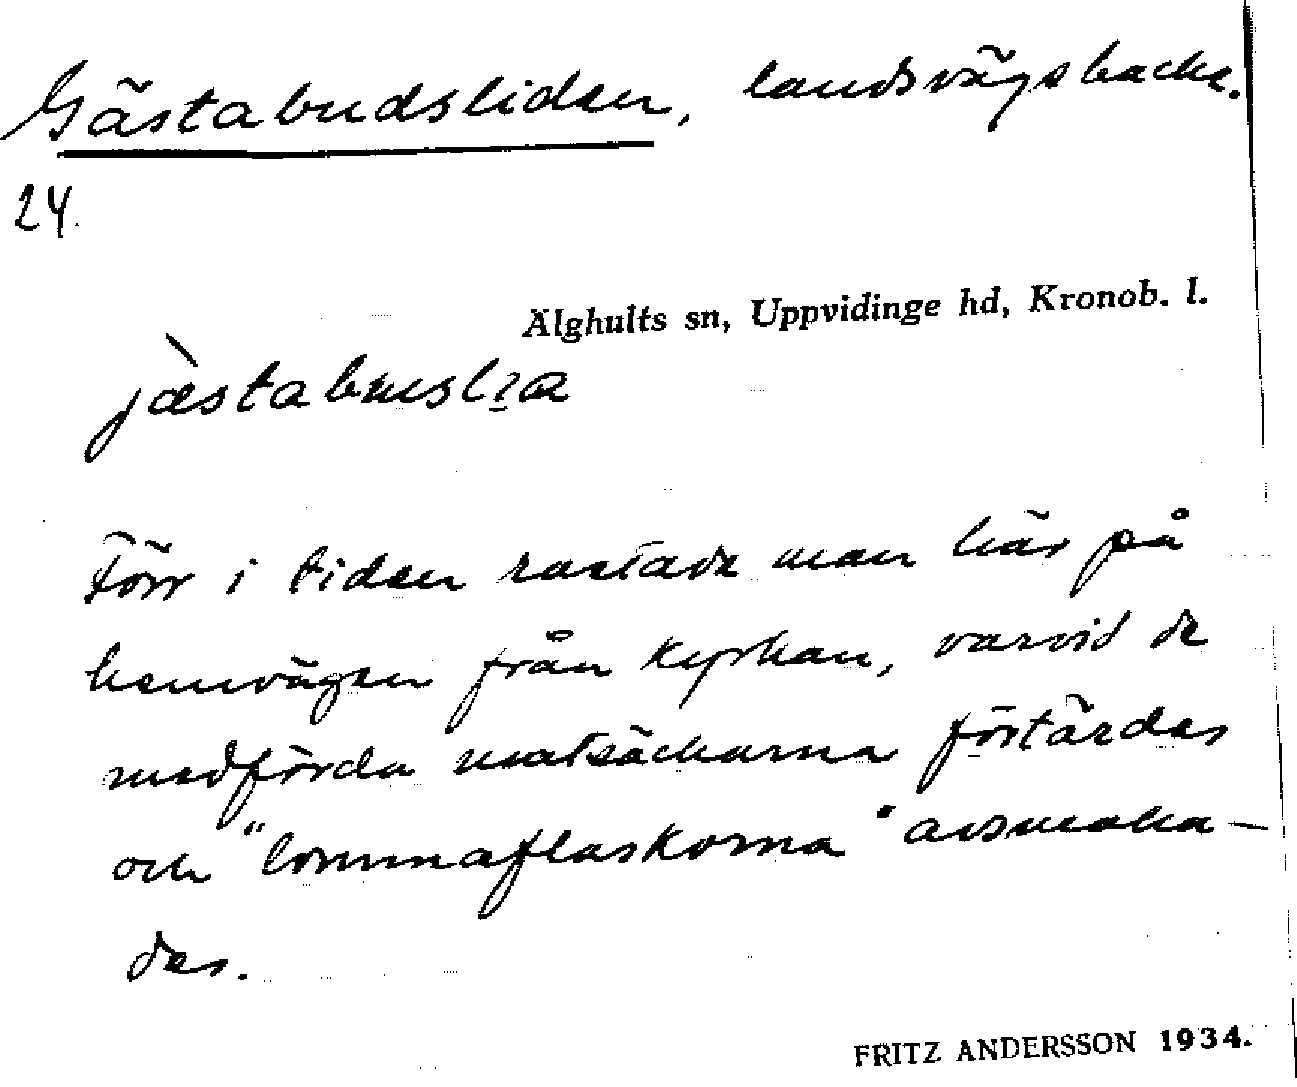 Gästabudsliden, landsvägsbacke.
24.
Älghults sn, Uppvidinge hd, Kronob. l.
jæstabusl
Förr i tiden rastade man här på
hemvägen från kyrkan, varvid de
medförda matsäckarna förtärdes
och "lommaflaskorna" avsmaka-
des.
FRITZ ANDERSSON 1934.